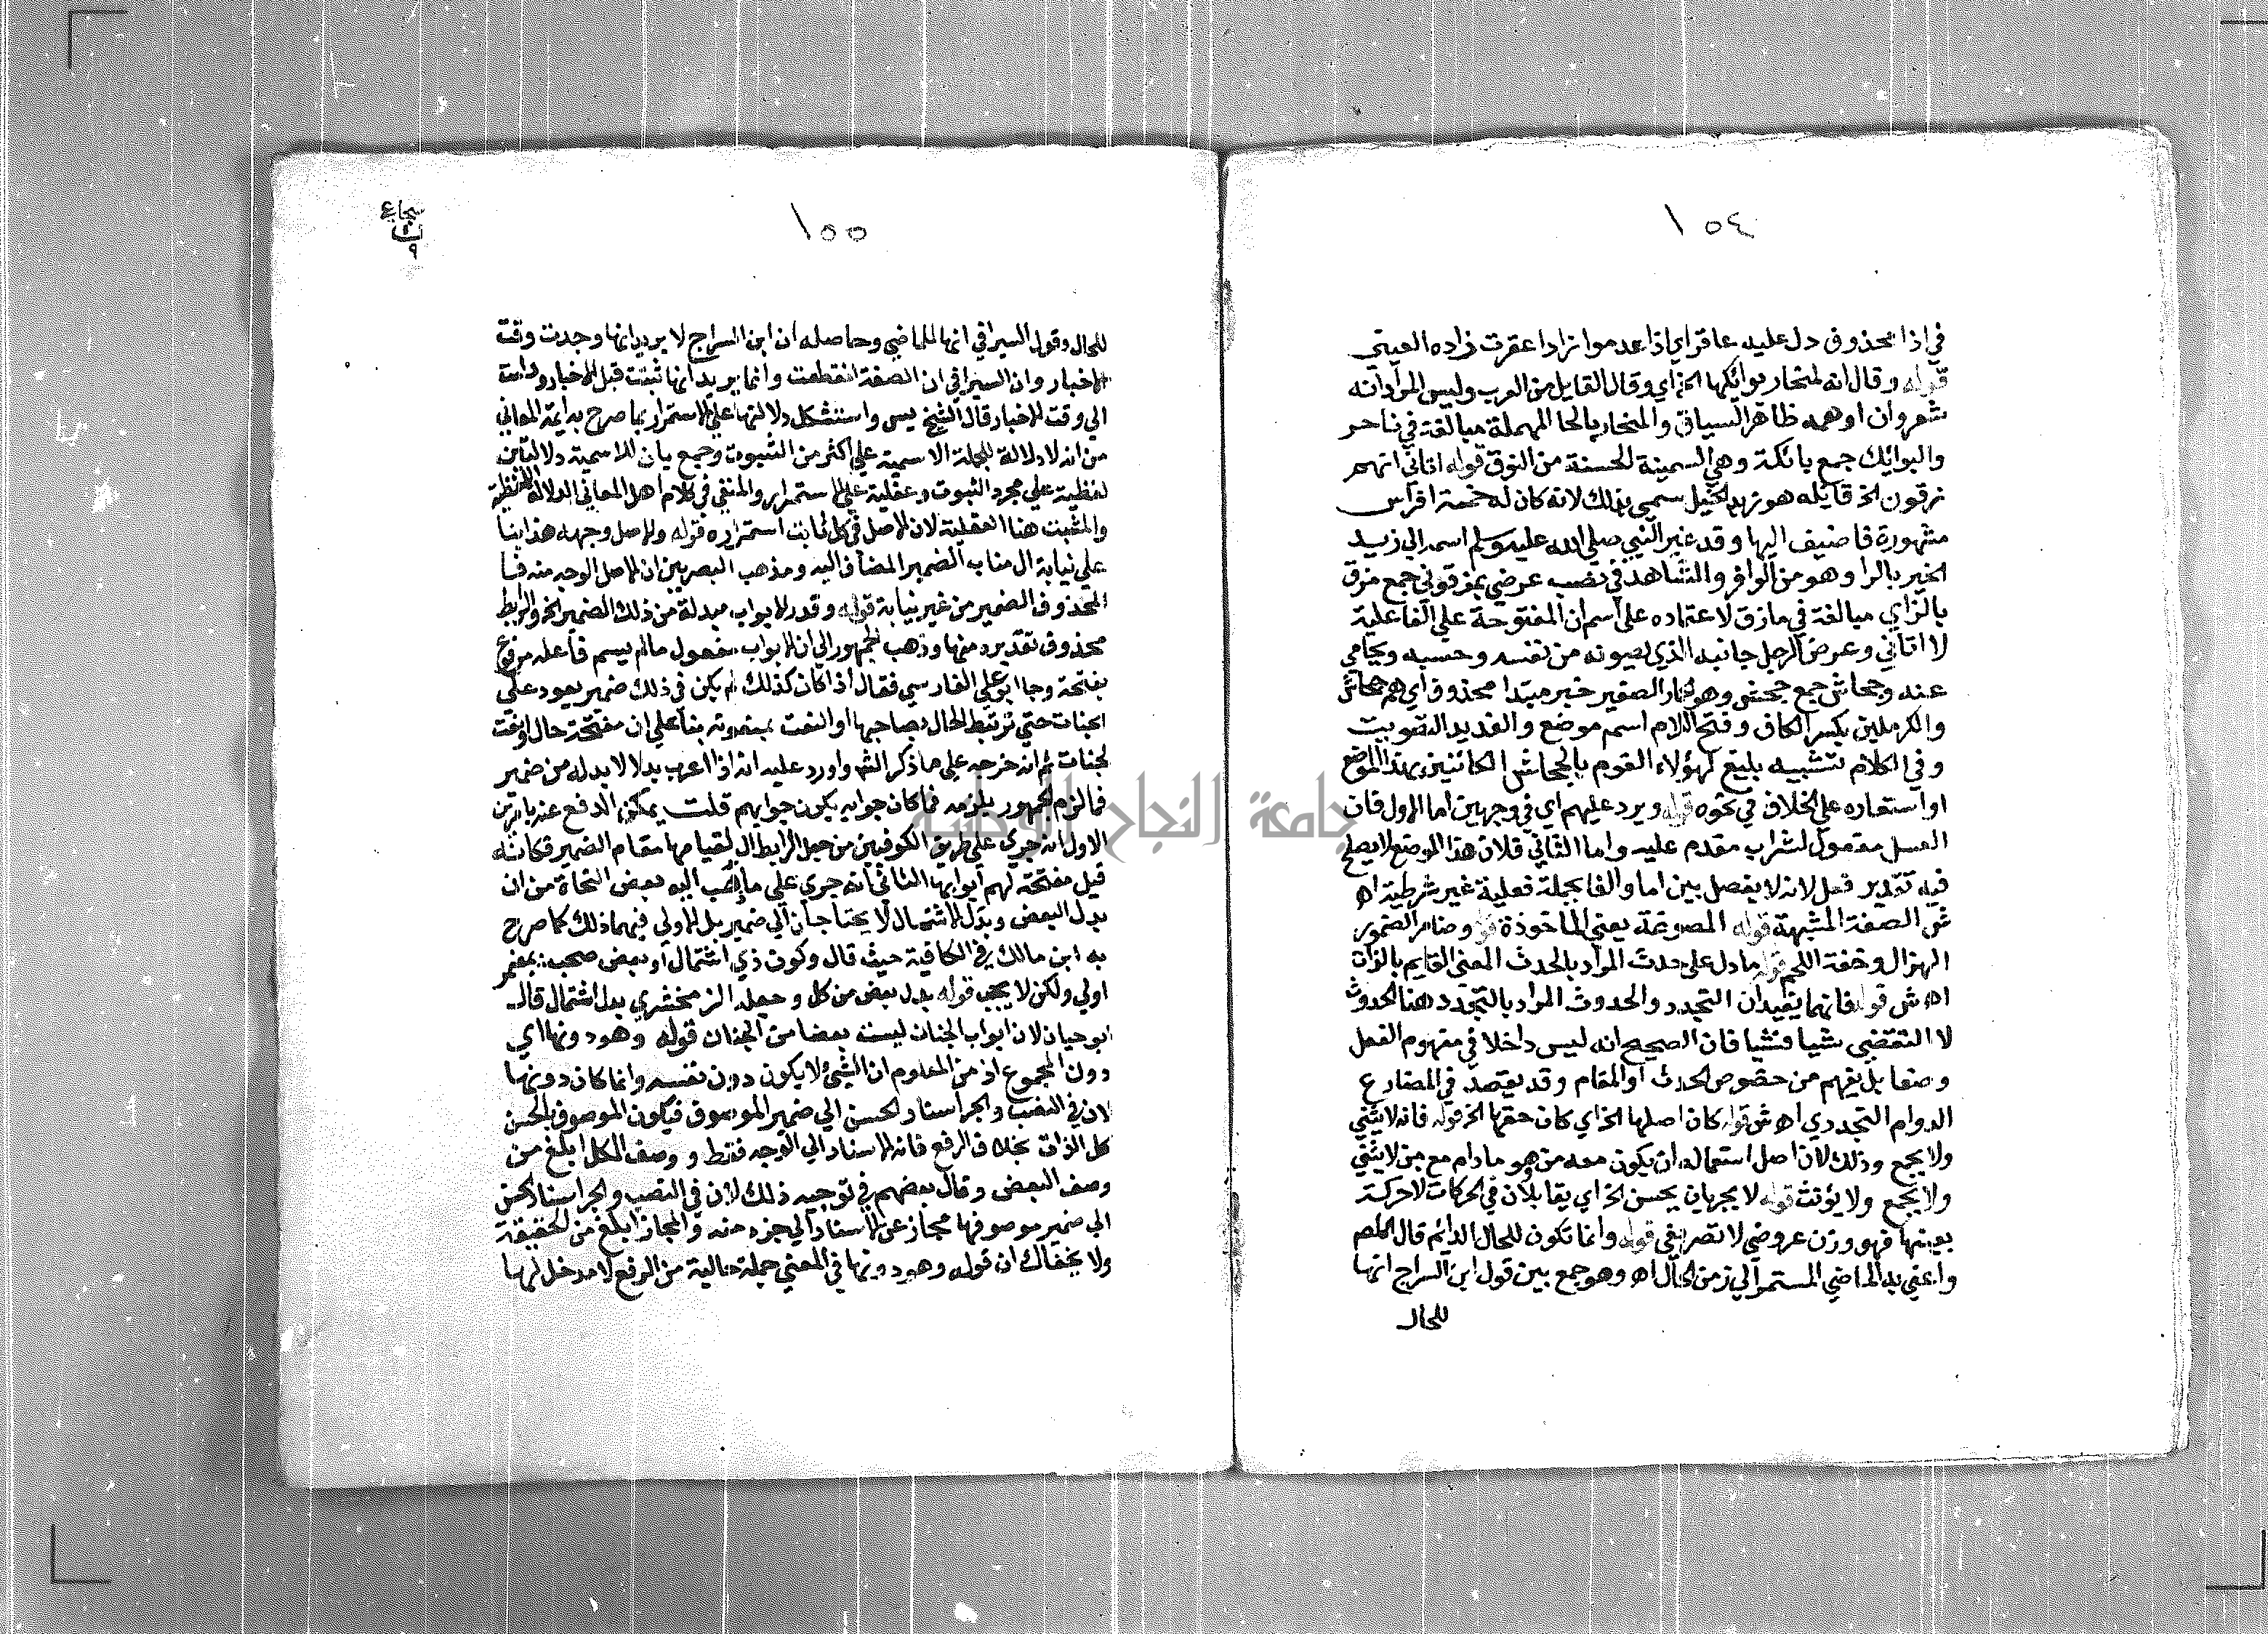 ١٥٤
في اذا محذوف دل عليه عاقر اي اذا عدموا زادا عقرت زاده العيني
قوله وقال انه لمنحار بوائكها الخ اي وقال القايل من العرب وليس المراد انه
شعر وان اوهمه ظاهر السياق والمنحار بالحا المهملة مبالغة في ناحر
والبوايك جمع بائكة وهي السمينة الحسنة من النوق قوله اتاني انهم
مزقون الخ قائله هو زيد الخيل سمي بذلك لانه كان له خمسة افراس
مشهورة فاضيف اليها وقد غير النبي صلي الله عليه وسلم اسمه الي زيد
الخير بالرا وهو من الوافر والشاهد في نصب عرضي بمزقوني جمع مزق
بالزاي مبالغة في مازق لاعتماده على اسم ان المفتوحة علي الفاعلية
لا اتاني وعرض الرجل جانبه الذي يصونه من نفسه وحسبه ويحامي
عنه وجحاش جمع جحش وهو الحمار الصغير خبر مبتدا محذوف اي هم جحاش
والكرملين بكسر الكاف وفتح اللام اسم موضع والفديد التصويت
وفي الكلام تشبيه بليغ لهؤلاء القوم بالجحاش الكائنين بهذا الموضع
او استعاره على الخلاف في نحوه قوله ويرد عليهم اي في وجهين اما الاول فان
العسل مفعول لشراب مقدم عليه واما الثاني فلان هذا الموضع لا يصلح
فيه تقدير فعل لانه لا يفصل بين اما والفا بجملة فعلية غير شرطية اه
ش الصفة المشبهة قوله المصوغة يعني الماخوذة قوله وضامر الضمور
الهزال وخفة اللحم قوله ما دل على حدث المراد بالحدث المعنى القايم بالذات
اه ش قوله فانهما يفيدان التجدد والحدوث المراد بالتجدد هنا الحدوث
لا التقضي شيا فشيا فان الصحيح انه ليس داخلا في مفهوم الفعل
وضعا بل يفهم من خصوص الحدث او المقام وقد يقصد في المضارع
الدوام التجددي اه ش قوله كان اصلها الخ اي كان حقها الخ قوله فانه لا يثني
ولا يجمع وذلك لان اصل استعماله ان يكون معه من هو ما دام مع من لا يثني
ولا يجمع ولا يؤنث قوله لا يجريان يحسن الخ اي يقابلان في الحركات لا حركة
بعينها فهو وزن عروضي لا تصريفي قوله وانما تكون للحال الدايم قال المص
واعني به الماضي المستمر الي زمن الحال اه وهو جمع بين قول ابن السراج انها
للحال
١٥٥
سجاعي
ث
٩
للحال وقول السيرافي انها للماضي وحاصله ان ابن السراج لا يريد انها وجدت وقت
الاخبار وان السيرافي ان الصفة انقطعت وانما يريد انها ثبتت قبل الاخبار ودامت
الي وقت الاخبار قال الشيخ يس واستشكل دلالتها علي الاستمرار بما صرح به ايمة المعاني
من انه لا دلالة للجملة الاسمية علي اكثر من الثبوت وجمع بان للاسمية دلالتين
لفظية علي مجرد الثبوت وعقلية علي الاستمرار والمنفي في كلام اهل المعاني الدلالة اللفظية
والمثبت هنا العقلية لان الاصل في كل ثابت استمراره قوله والاصل وجهه هذا بنا
علي نيابة ال مناب الضمير المضاف اليه ومذهب البصريين ان الاصل الوجه منه فبا
المحذوف الضمير من غير نيابة قوله وقدر الابواب مبدلة من ذلك الضمير الخ والرابط
محذوف تقديره منها وذهب الجمهور الي ان الابواب مفعول ما لم يسم فاعله مرفوع
بمفتحة وجا ابو علي الفارسي فقال اذا كان كذلك لم يكن في ذلك ضمير يعود على
الجنات حتي ترتبط الحال بصاحبها او النعت بمنعوته بنا علي ان مفتحة حال او نعت
لجنات ثم انه خرجه علي ما ذكر الش واورد عليه انه اذا اعرب بدلا لا بد له من ضمير
فما لزم الجمهور يلزمه فما كان جوابه يكون جوابهم قلت يمكن الدفع عنه بامرين
الاول انه جري علي طريق الكوفيين من جعل الرابط ال لقيامها مقام الضمير فكانه
قيل مفتحة لهم ابوابها الثاني انه جري علي ما ذهب اليه بعض النحاة من ان
بدل البعض وبدل الاشتمال لا يحتاجان الي ضمير بل الاولي فيهما ذلك كما صرح
به ابن مالك في الكافية حيث قال وكون ذي اشتمال او بعض صحب: بمضمر
اولي ولكن لا يجب قوله بدل بعض من كل وجعله الزمخشري بدل اشتمال قال
ابو حيان لان ابواب الجنان ليست بعضا من الجنان قوله وهو دونها اي
دون المجموع اذ من المعلوم ان الشيء لا يكون دون نفسه وانما كان دونها
لان في النصب والجر اسناد الحسن الي ضمير الموصوف فيكون الموصوف بالحسن
كل الذات بخلاف الرفع فانه الاسناد الي الوجه فقط ووصف الكل ابلغ من
وصف البعض وقال بعضهم في توجيه ذلك لان في النصب والجر اسناد الحسن
الي ضمير موصوفها مجاز عن الاسناد الي جزء منه والمجاز ابلغ من الحقيقة
ولا يخفاك ان قوله وهو دونها في المعني جملة حالية من الرفع لا مدخل لها
جامعة النجاح الوطنية